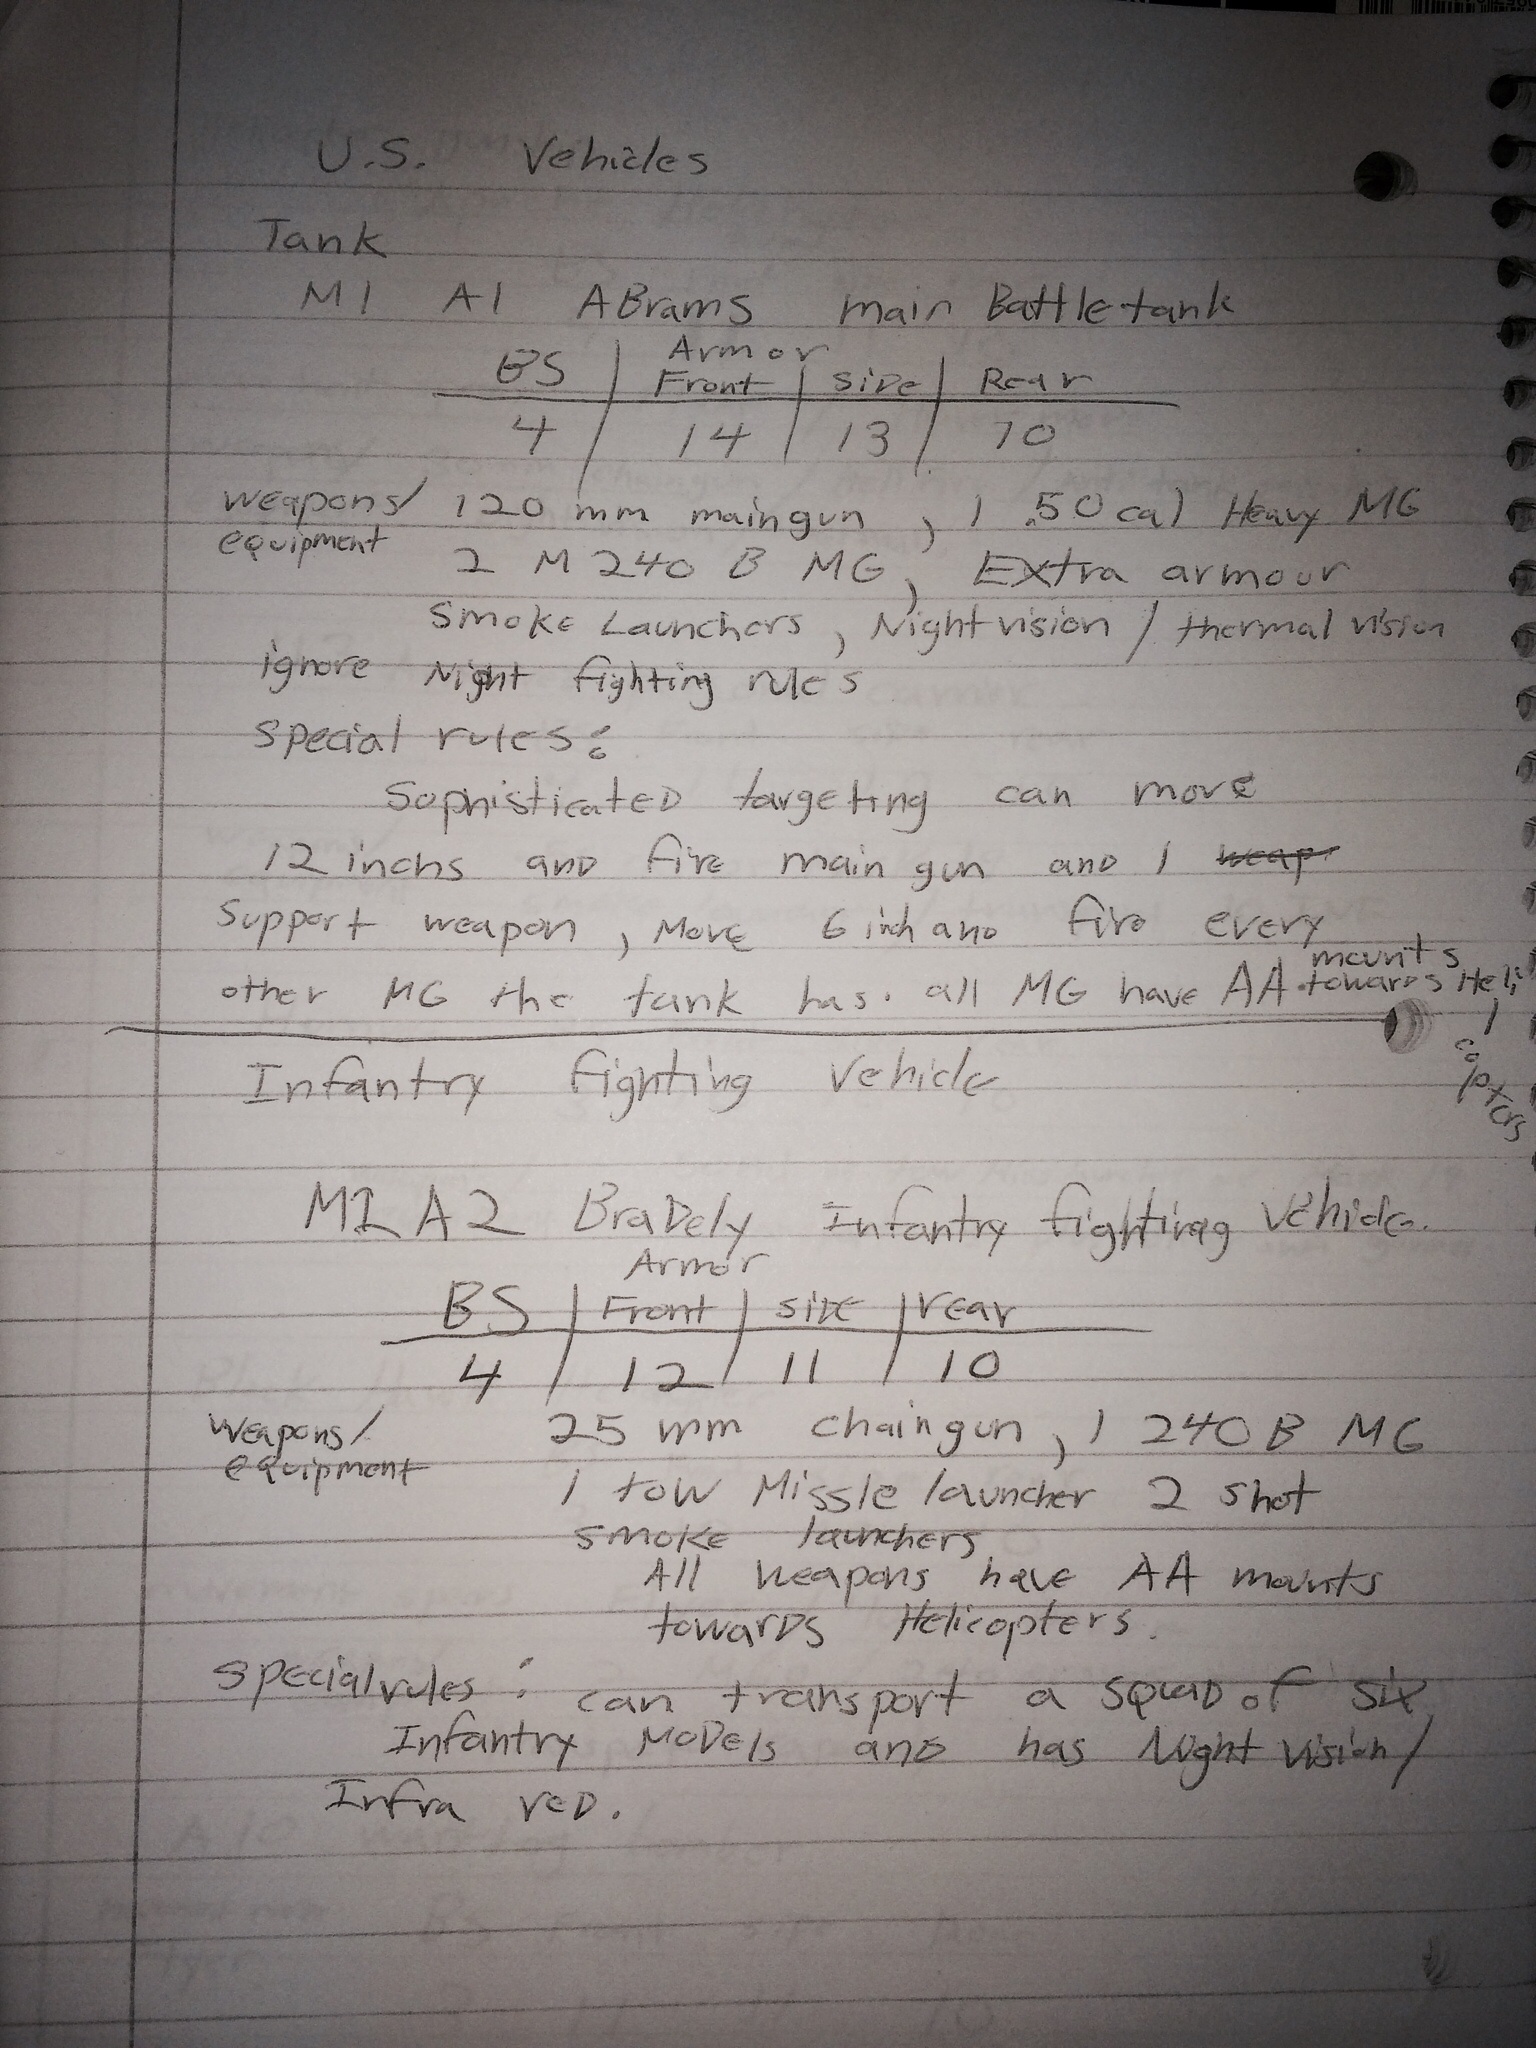 U.S. Vehicles
Tank
M1 A1 ABrams main Battle tank
BS | Armor Front | SiDe | Rear
4 | 14 | 13 | 10
weapons/ equipment 120 mm main gun, 1 .50 cal Heavy MG
2 M 240 B MG, Extra armour
Smoke Launchers, Night vision / thermal vision
ignore Night fighting rules
Special rules:
SophisticateD targeting can move
12 inchs anD fire main gun anD 1 weap
Support weapon, Move 6 inch anD fire every
other MG the tank has. all MG have AA mounts towarDs Heli/
copters
Infantry fighting Vehicle
M2 A2 BraDely Infantry fighting Vehicle.
BS | Armor Front | SiDE | rear
4 | 12 | 11 | 10
Weapons/ equipment 25 mm chain gun, 1 240 B MG
1 tow Missle launcher 2 shot
smoke launchers
All weapons have AA mounts
towarDs Helicopters.
Special rules: can transport a squaD of six
Infantry MoDels anD has Night vision/
Infra reD.